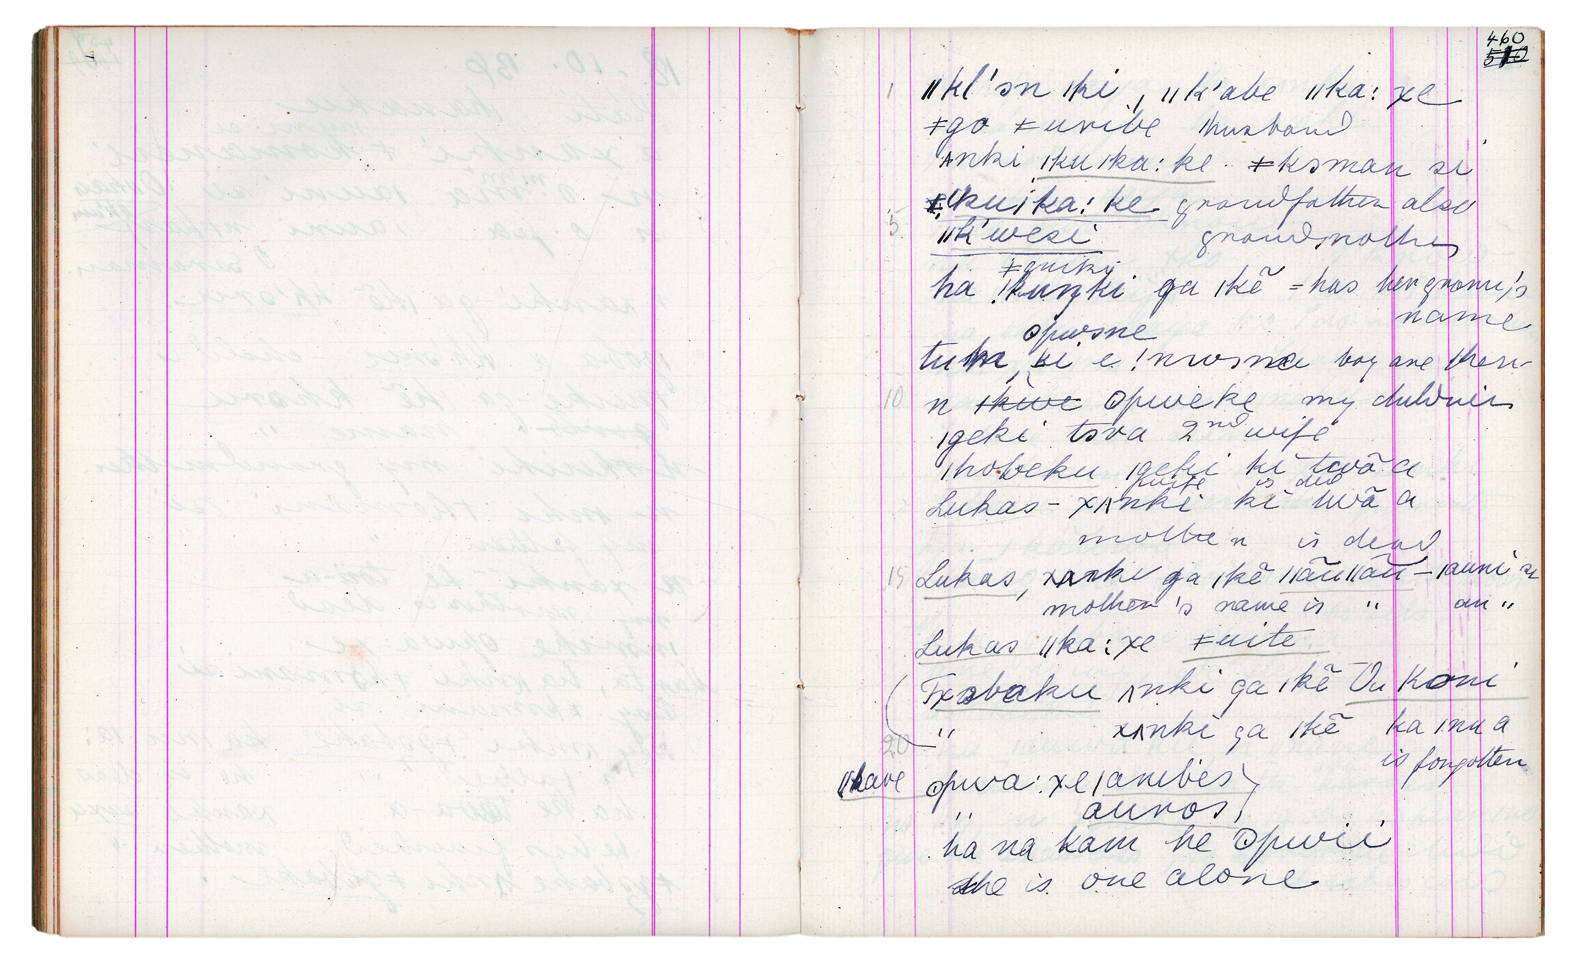 460
510
1 ǁkl'ɔn ǀki, ǁk'abe ǁka: xe
ǂgo ǂuribe husband
ʌnki ǀkuǀka: ke. ǂkɔman si
ǀkuǀka: ke grandfather also
5 ǁk'wesi grandmother
ǂguiki
ha !kunki ga ǀkẽ = has her granny's
name
ʘpwɔne
tuka, si e !nwɔna boy are
10 n ǀkiwe ʘpweke my children
ǀgeki tɔva 2nd wife
ǀhobeku ǀgeki ki twã a
wife is dead
Lukas - xʌnki ki twã a
mother is dead
15 Lukas, xanki ga ǀkẽ ǁãuǁãu - ǀauni
mother's name is " an "
Lukas ǁka: xe ǂuite
Txɔbaku ʌnki ga ǀkẽ Ou Koni
20 " xʌnki ga ǀkẽ ka ǀnu a
is forgotten
ǁkave ʘpwa: xe ǀanibes
" auros
ha na kam he ʘpwii
she is one alone